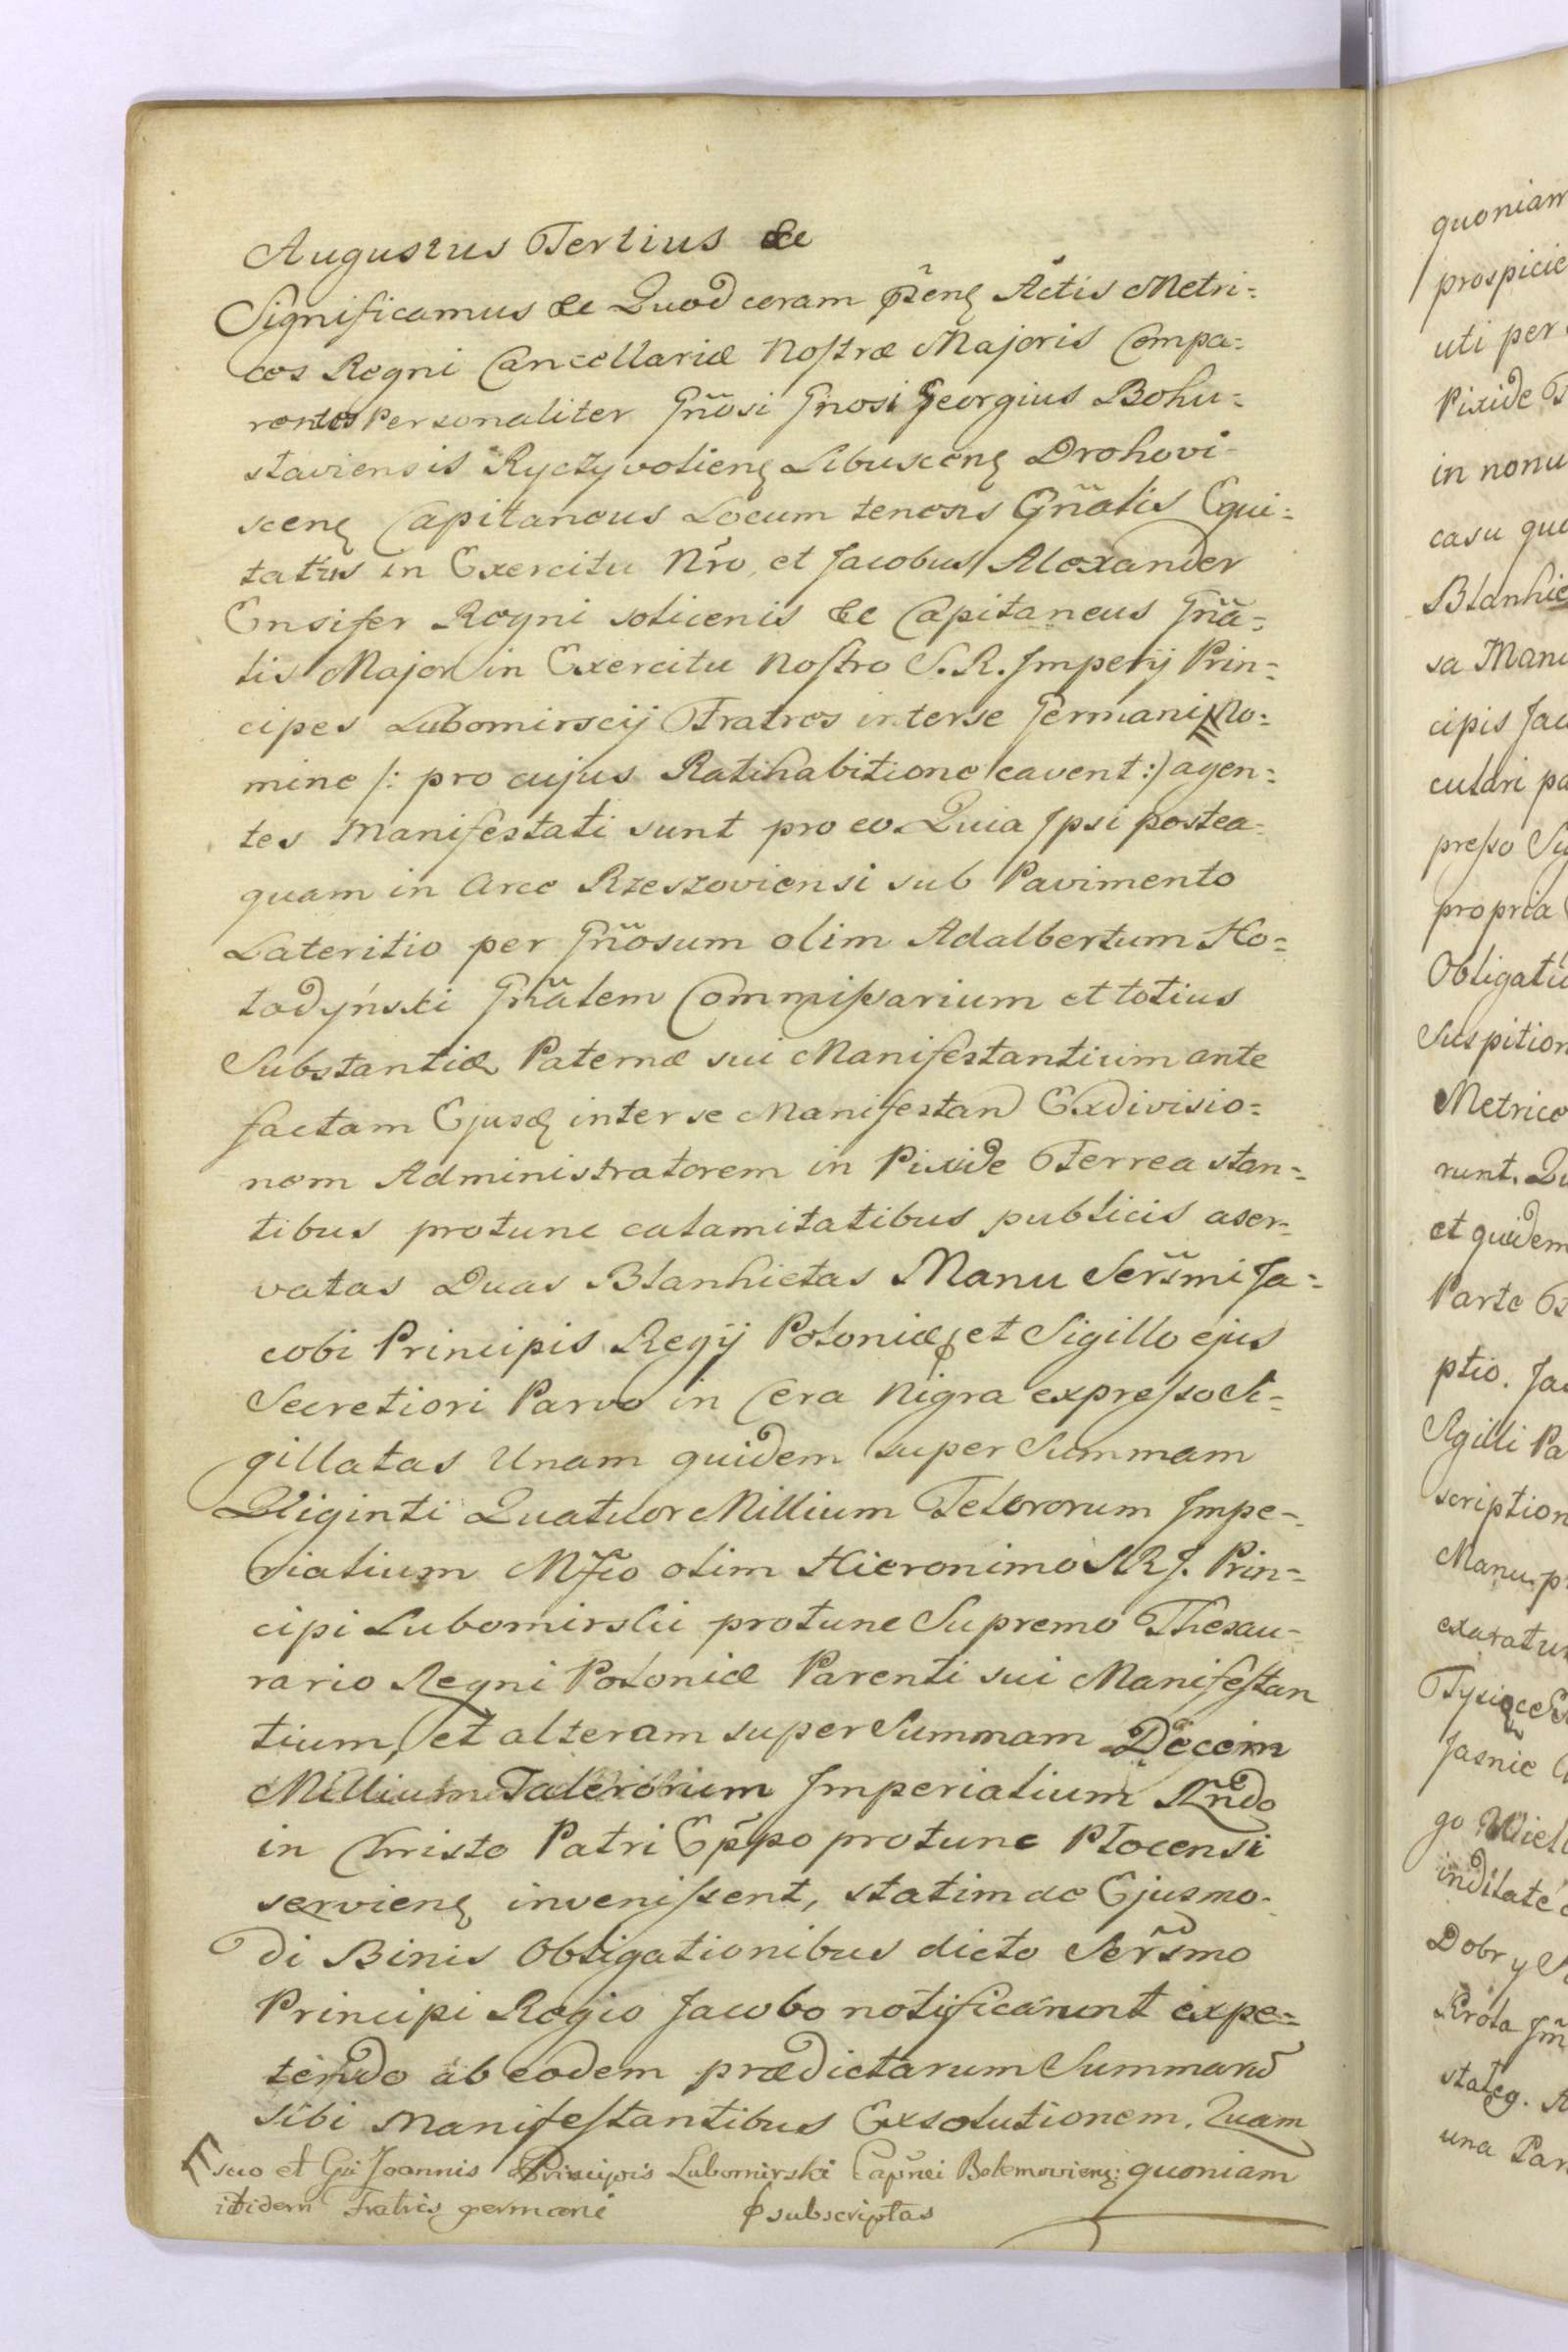 Augustus Tertius &c
Significamus &c Quod coram pñeng Actis Metri=
ces Regni Cancellariæ Nostræ Majoris Compa=
rentes Personaliter Gñosi Gnosi Georgius Bohu=
staviensis Ryczyvolieng Libusceng Drohovi-
sceng Capitaneus Locum tenens Gñralis Equi=
tatus in Exercitu Nro, et Jacobus Alexander
Ensifer Regni soticenis &c Capitaneus Gña=
lis Major in Exercitu Nostro S. R. Imperij Prin=
cipes Lubomirscij Fratres inter se Germani No=
mine /: pro cujus Ratihabitione cavent :/ agen=
tes Manifestati sunt pro eo Quia Ipsi postea=
quam in Arce Rzeszoviensi sub Pavimento
Lateritio per Gñosum olim Adalbertum Ho=
lodyński Gñalem Commissarium et totius
Substantiæ Paternæ sui Manifestantium ante
factam Ejusd inter se Manifestan Exdivisio=
nem Administratorem in Pixide Ferrea stan=
tibus protunc calamitatibus publicis aser-
vatas Duas Blanhietas Manu Serѕmi Ja=
cobi Principis Regij Poloniæ ф et Sigillo ejus
Secretiori Parvo in Cera Nigra expresso Si=
gillatas Unam quidem super Summam
Viginti Quatuor Millium Telerorum Impe=
rialium Mfco olim Hieronimo S R J. Prin=
cipi Lubomirskii protunc Supremo Thesau=
rario Regni Poloniæ Parenti sui Manifestan
tium, et alteram super Summam Decem
Millium Talerorum Imperialium Rñdo
in Christo Patri Eppo protunc Plocensi
servieng invenissent, statim de Ejusmo-
di Binis Obligationibus dicto Serѕmo
Principi Regio Jacobo notificarunt expe=
tendo ab eodem prædictarum Summarũ
sibi Manifestantibus Exsolutionem. Quam
suo et Gsi Joannis Principis Lubomirski Capnei Bolemovieng: quoniam
itidem Fratris germani ф subscriptas

quoniam
prospicie
uti per
Pixide
in nonu
casu qu
Blanhie
sa Man
cipis Jac
culari pa
presso Si
propria
Obligatio
Suspition
Metrice
runt. Qu
et quidem
Parte
ptio. Ja
Sigilli Pa
scription
Manu p
exaratu
Jasnie
go Wiel
Dobr y
Krola Jm
una Par